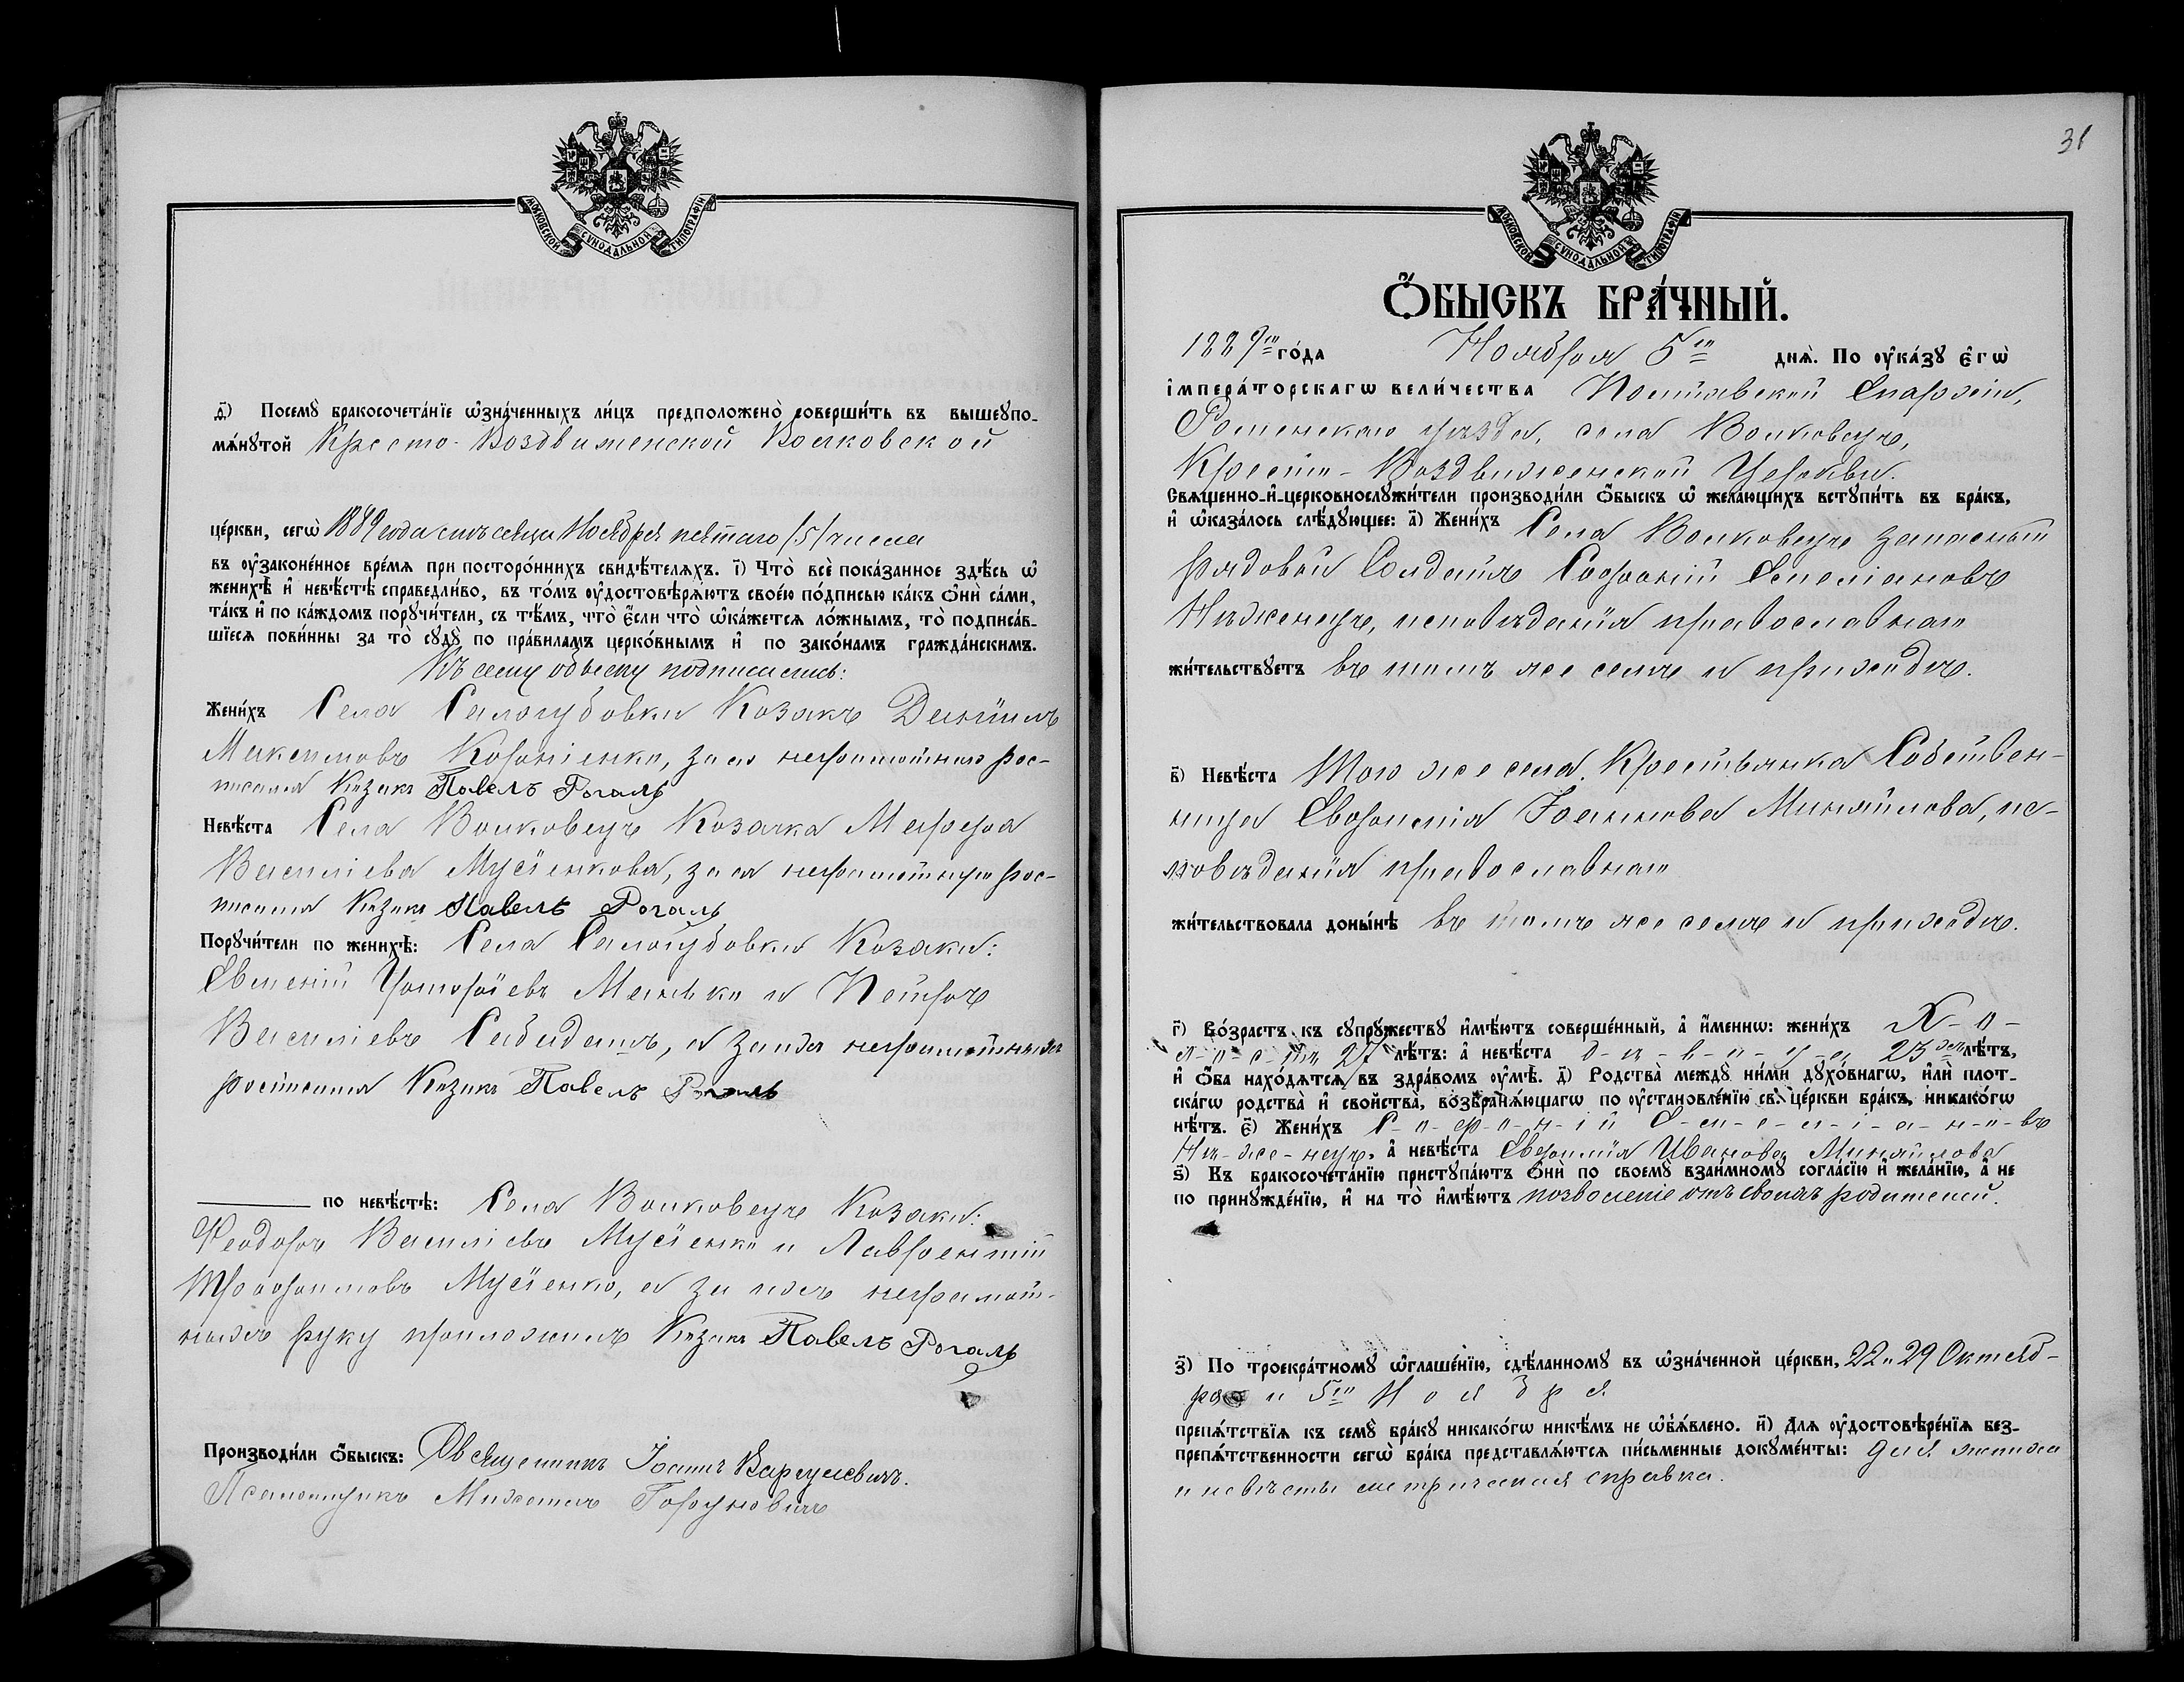 МОСКОВСКОЙ СѴНОДАЛЬНОЙ ТИПОГРАФІИ
д҃) Посемꙋ̀ бракосочета́нїе ѡ҆зна́ченныхъ ли́цъ предположено̀ соверши́ть въ вышеꙋпо-
мѧ́нꙋтой Кресто-Воздвиженской Волковской
це́ркви, сегѡ̀ 1889 года мѣсяца Ноября пятаго /5/ числа
въ ᲂу҆зако́ненное вре́мѧ при посторо́ннихъ свидѣ́телѧхъ. і҃) Что̀ всѐ пока́занное здѣ́сь ѡ҆
женихѣ̀ и҆ невѣ́стѣ справедли́во, въ то́мъ ᲂу҆достовѣрѧ́ютъ свое́ю по́дписью ка́къ ѻ҆нѝ са́ми,
та́къ и҆ по ка́ждомъ порꙋчи́тели, съ тѣ́мъ, что̀ є҆́сли что̀ ѡ҆ка́жетсѧ ло́жнымъ, то̀ подписа́в-
шїесѧ пови́нны за то̀ сꙋдꙋ̀ по пра́виламъ церко́внымъ и҆ по зако́намъ гражда́нскимъ.
Къ сему обыску подписались:
Жени́хъ Села Салогубовки Козакъ Даніилъ
Максимовъ Короненко, за неграмотнаго рос-
писался Козакъ Павелъ Рогаль
Невѣ́ста Села Волковецъ Козачка Марфа
Василіева Мусіенкова, за неграмотную рос-
писался Козакъ Павелъ Рогаль
Порꙋчи́тели по женихѣ̀: Села Салогубовки Козаки:
Евгеній Манько и Петръ
Василіевъ а за нихъ неграмотныхъ
росписался Козакъ Павелъ Рогаль
по невѣ́стѣ: Села Волковецъ Козаки:
Феодоръ Василіевъ Мусіенко и Лаврентій
Трофимовъ Мусіенко, а за нихъ неграмот-
ныхъ руку приложилъ Козакъ Павелъ Рогаль
Производи́ли ѻ҆́быскъ: Священникъ Іоаннъ Варгулевичъ.
Псаломщикъ Михаилъ Горуновичъ
31
МОСКОВСКОЙ СѴНОДАЛЬНОЙ ТИПОГРАФІИ
Ѻ҆БЫСКЪ БРА́ЧНЫЙ.
1889го го́да Ноября 5го днѧ̀. По ᲂу҆ка́зꙋ є҆гѡ̀
і҆мпера́торскагѡ вели́чества Полтавской Епархіи,
Роменскаго уѣзда, села Волковецъ,
Кресто-Воздвиженской Церкви.
Свѧщенно-и҆-церковнослꙋжи́тели производи́ли ѻ҆́быскъ ѡ҆ жела́ющихъ встꙋпи́ть въ бра́къ,
и҆ ѡ҆каза́лось слѣ́дꙋющее: а҃) Жени́хъ Села Волковецъ запасный
рядовой Солдатъ Софроній Емеліановъ
Нѣженецъ, исповѣданія православнаго
жи́тельствꙋетъ въ томъ же селѣ и приходѣ.
в҃) Невѣ́ста Того же села Крестьянка Собствен-
ница Евфимія Іоаннова Минайлова, ис-
повѣданія православнаго
жи́тельствовала доны́нѣ въ томъ же селѣ и приходѣ.
г҃) Во́зрастъ къ сꙋпрꙋ́жествꙋ и҆мѣ́ютъ соверше́нный, а҆ и҆́меннѡ: жени́хъ Х-о-
л-о-с-тъ 27 лѣ́тъ: а҆ невѣ́ста д-ѣ-в-и-ц-а 25 лѣ́тъ,
и҆ ѻ҆́ба нахо́дѧтсѧ въ здра́вомъ ᲂу҆мѣ̀. д҃) Родства̀ междꙋ ни́ми дꙋхо́внагѡ, и҆лѝ плот-
ска́гѡ родства̀ и҆ свойства̀, возбранѧ́ющагѡ по ᲂу҆становле́нїю св. це́ркви бра́къ, никако́гѡ
нѣ́тъ. є҃) Жени́хъ С-о-ф-р-о-н-і-й Е-м-е-л-і-а-н-о-въ
Нѣ-же-нецъ, а҆ невѣ́ста Евфимія Иванова Минайлова
ѕ҃) Къ бракосочета́нїю пристꙋпа́ютъ ѻ҆нѝ по своемꙋ̀ взаи́мномꙋ согла́сїю и҆ жела́нїю, а҆ не
по принꙋжде́нїю, и҆ на то̀ и҆мѣ́ютъ позволеніе отъ своихъ родителей.
з҃) По троекра́тномꙋ ѡ҆глаше́нїю, сдѣ́ланномꙋ въ ѡ҆зна́ченной це́ркви, 22 и 29 Октяб-
ря и 5го Ноября
препѧ́тствїѧ къ семꙋ̀ бра́кꙋ никако́гѡ никѣ́мъ не ѡ҆б̾ѧ́влено. и҃) Длѧ ᲂу҆достовѣре́нїѧ без-
препѧ́тственности сегѡ̀ бра́ка представлѧ́ютсѧ пи́сьменные докꙋме́нты: для жениха
и невѣсты метрическая справка.